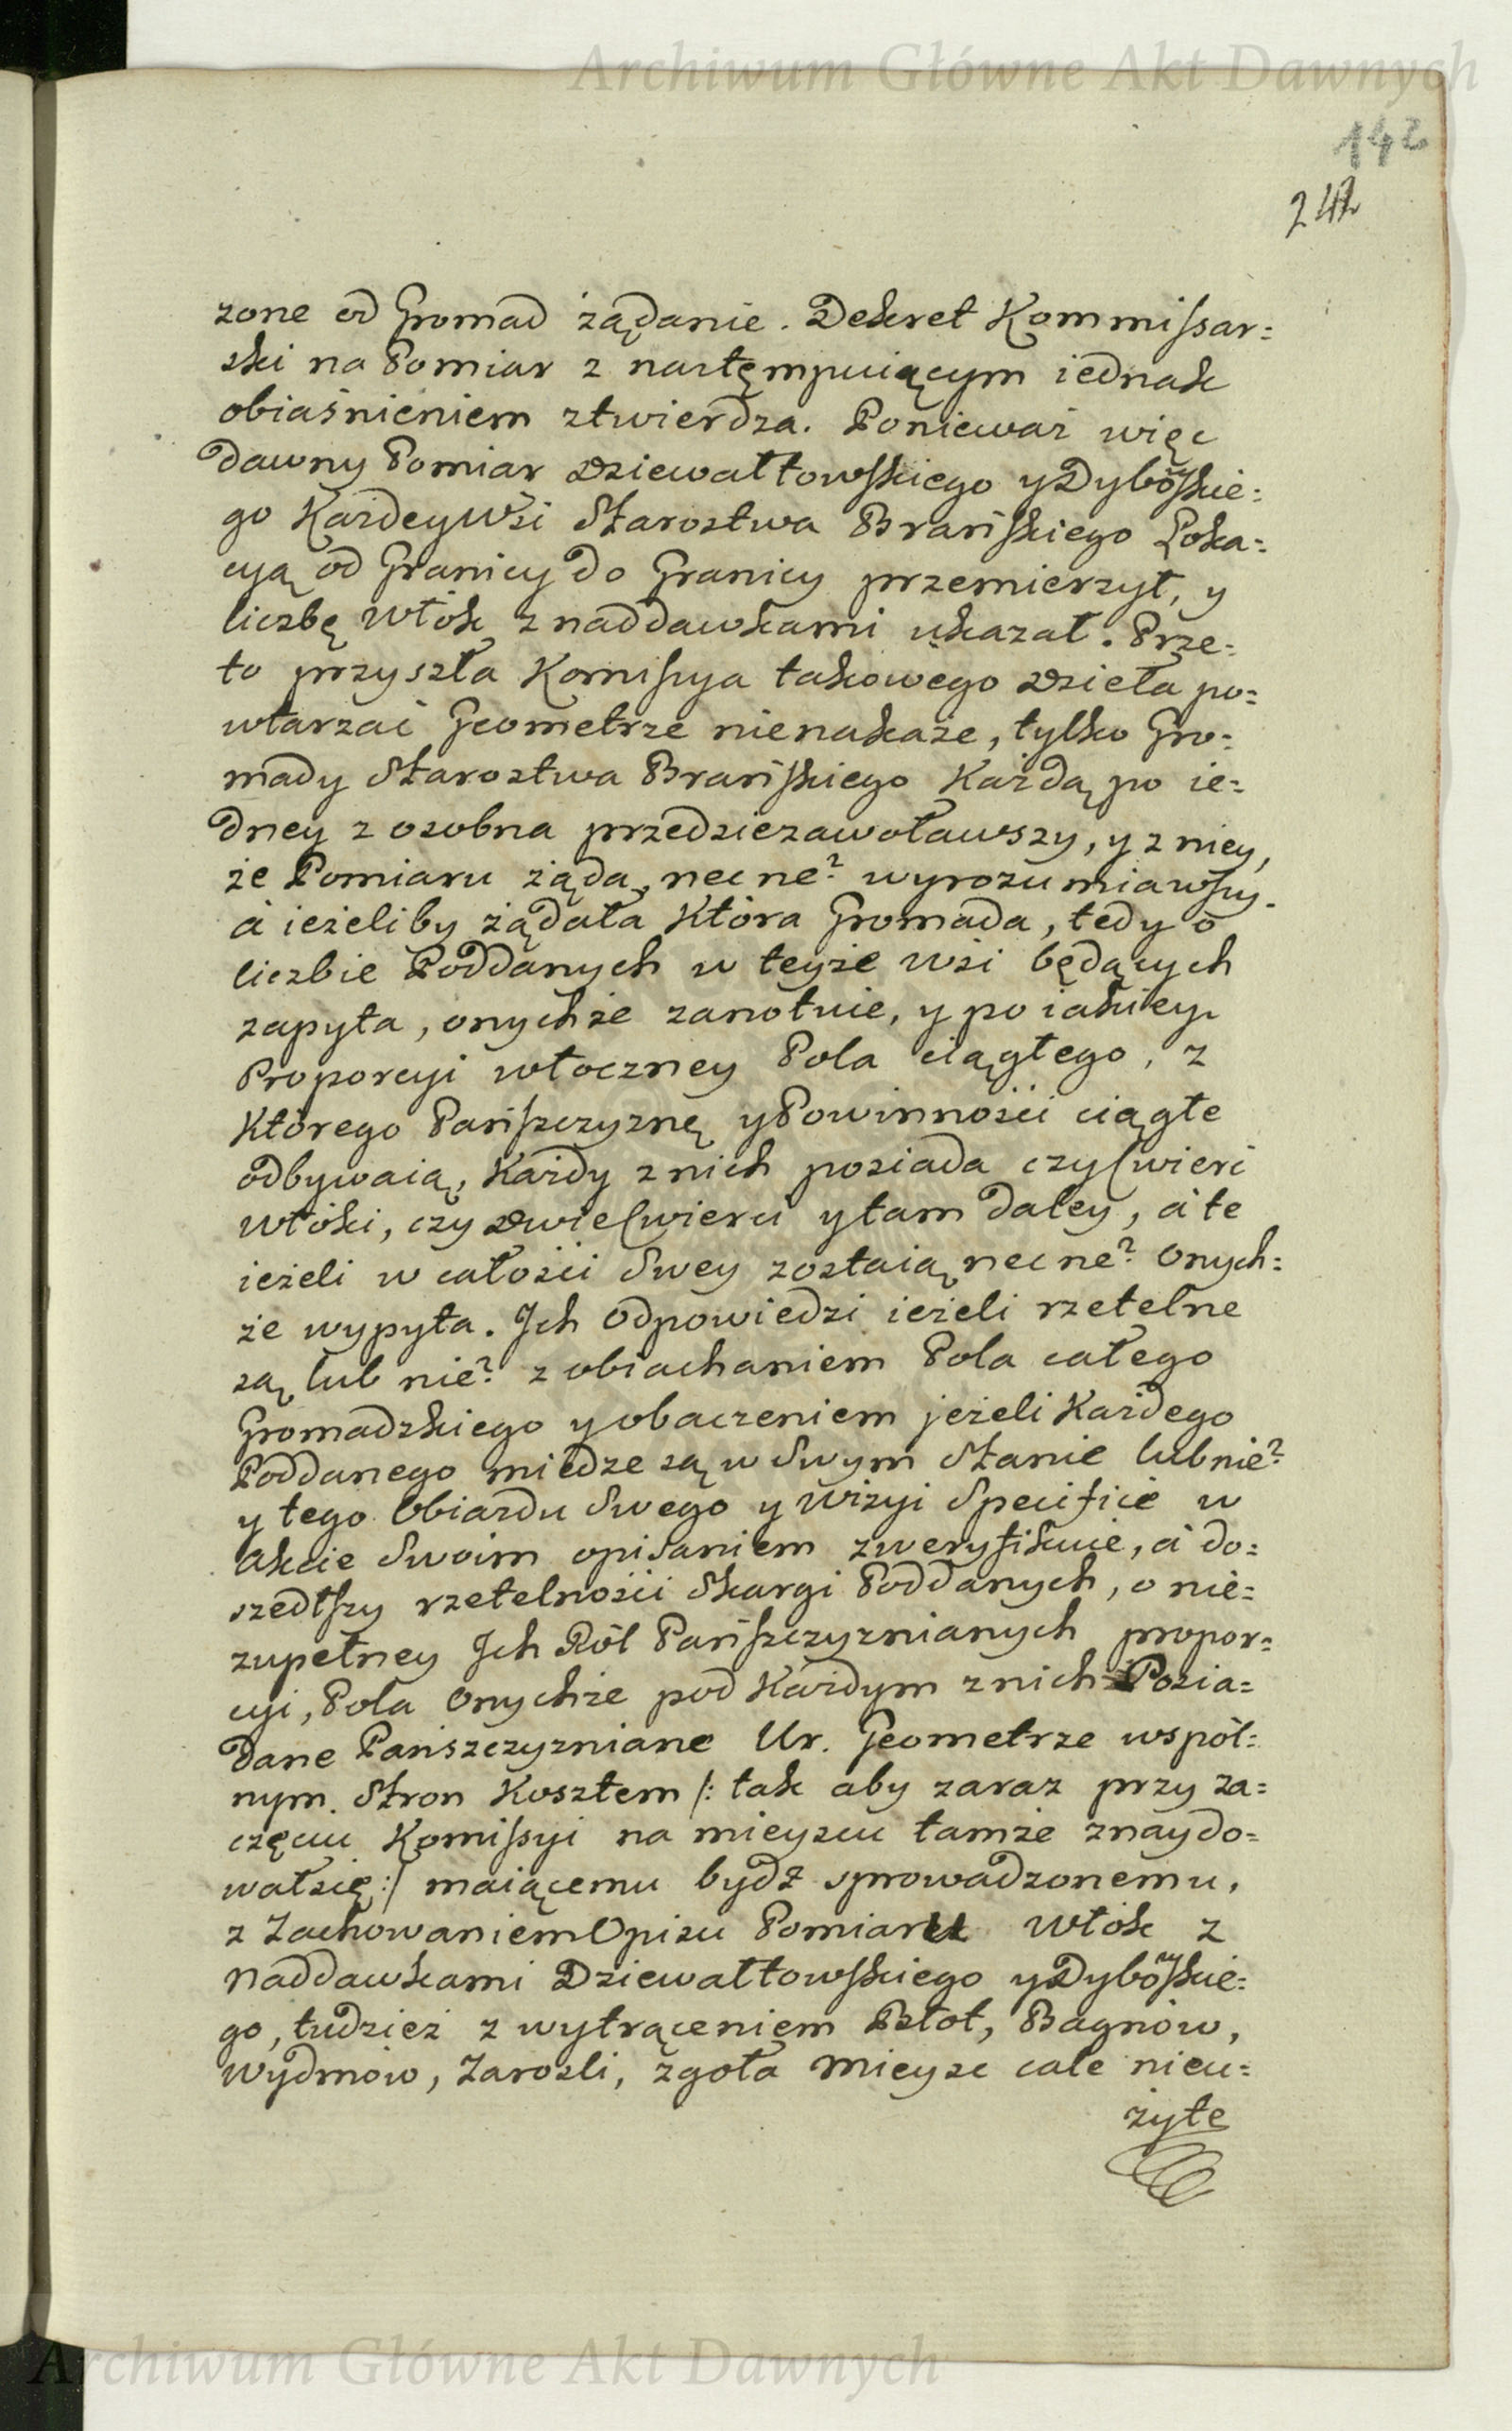 Archiwum Główne Akt Dawnych
142
242
zone od Gromad żądanie. Dekret Kommissar=
ski na Pomiar z nastęmpuiącym iednak
obiaśnieniem ztwierdza. Ponieważ więc
dawny Pomiar Dziewałtowskiego y Dyboskie=
go Każdey Wsi Starostwa Brańskiego Loka=
cyą od Granicy do Granicy przemierzył, y
liczbę Włók z naddawkami ukazał. Prze=
to przyszła Komissya takowego Dzieła po=
wtarzać Geometrze nienakaże, tylko Gro=
mady Starostwa Brańskiego Każdą po ie=
dney z osobna przedsiezawoławszy, y z niey,
że Pomiaru żąda, nec ne? wyrozumiawszy.
à ieżeliby żądała Która Gromada, tedy o
liczbie Poddanych w teyże wsi będących
zapyta, onychże zanotuie, y po iakiey
Proporcyi włoczney Pola ciągłego, z
Którego Pańszczyznę y Powinności ciągłe
odbywaią, Każdy z nich posiada czy ćwierć
włóki, czy dwie ćwierci y tam daley, à te
ieżeli w całości Swey zostaią nec ne? Onych=
że wypyta. Ich Odpowiedzi ieżeli rzetelne
są, lub nie? z obiachaniem Pola całego
Gromadzkiego y obaczeniem jeżeli Każdego
Poddanego miedze są w Swym Stanie lub nie?
y tego Obiazdu Swego y Wizyi Specifice w
Akcie Swoim opisaniem zweryfikuie, à do=
szedłszy rzetelności Skargi Poddanych, o nie=
zupełney Ich Ról Pańszczyznianych propor=
cyi, Pola Onychże pod Każdym z nich Posia=
dane Pańszczyzniane Ur. Geometrze wspól=
nym Stron Kosztem /: tak aby zaraz przy za=
częciu Komissyi na mieyscu tamże znaydo=
wał się :/ maiącemu bydź sprowadzonemu,
z Zachowaniem Opisu Pomiaru Włók z
Naddawkami Dziewałtowskiego y Dyboskie=
go, tudzież z wytrąceniem Błot, Bagnów,
Wydmów, Zarosli, zgoła Mieysc cale nieu=
żyte
Archiwum Główne Akt Dawnych